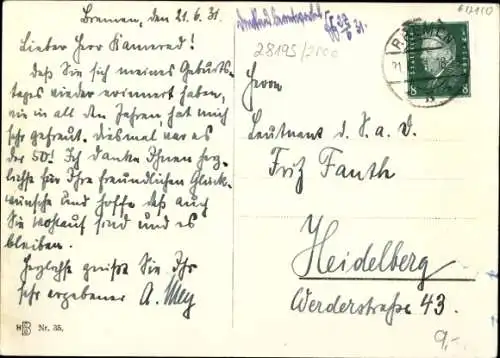 Bremen, den 21.6.31.
Lieber Herr Kamerad!
Daß Sie sich meines Geburts-
tages wieder erinnert haben,
wie in all den Jahren, hat mich
sehr gefreut. Diesmal war es
der 50! Ich danke Ihnen herz-
lichst für Ihre freundlichen Glück-
wünsche und hoffe daß auch
Sie wohlauf sind und es
bleiben.
Herzlichst grüßt Sie Ihr
sehr ergebener A. Mey
H B Nr. 35.
28195/2000
BREMEN
21
8 8
Herrn
Leutnant d. R. a. D.
Fritz Fanth
Heidelberg
Werderstraße 43.
9,-